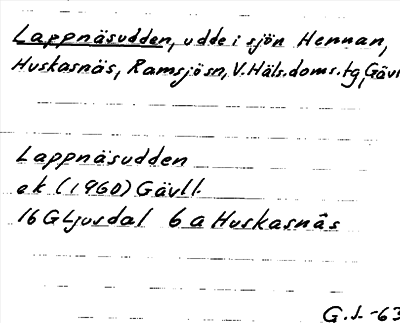 Lappnäsudden, udde i sjön Hennan,
Huskasnäs, Ramsjösn, V. Häls. doms. tg, Gävl
Lappnäsudden
ek (1960) Gävll.
16 G Ljusdal 6 a Huskasnäs
G. J. -63